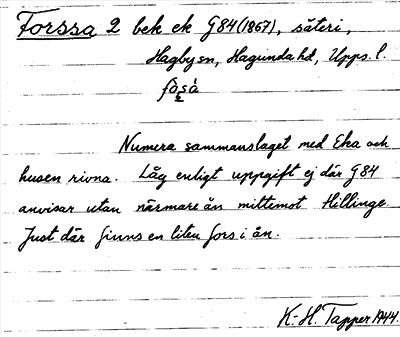 Forssa 2 bek ek G84 (1867), säteri,
Hagby sn, Hagunda hd, Upps. l.
fåsá
Numera sammanslaget med Eka och
husen rivna. Låg enligt uppgift ej där G84
anvisar utan närmare ån mittemot Hillinge
Just där finns en liten fors i ån.
K.-H. Tapper 1944.